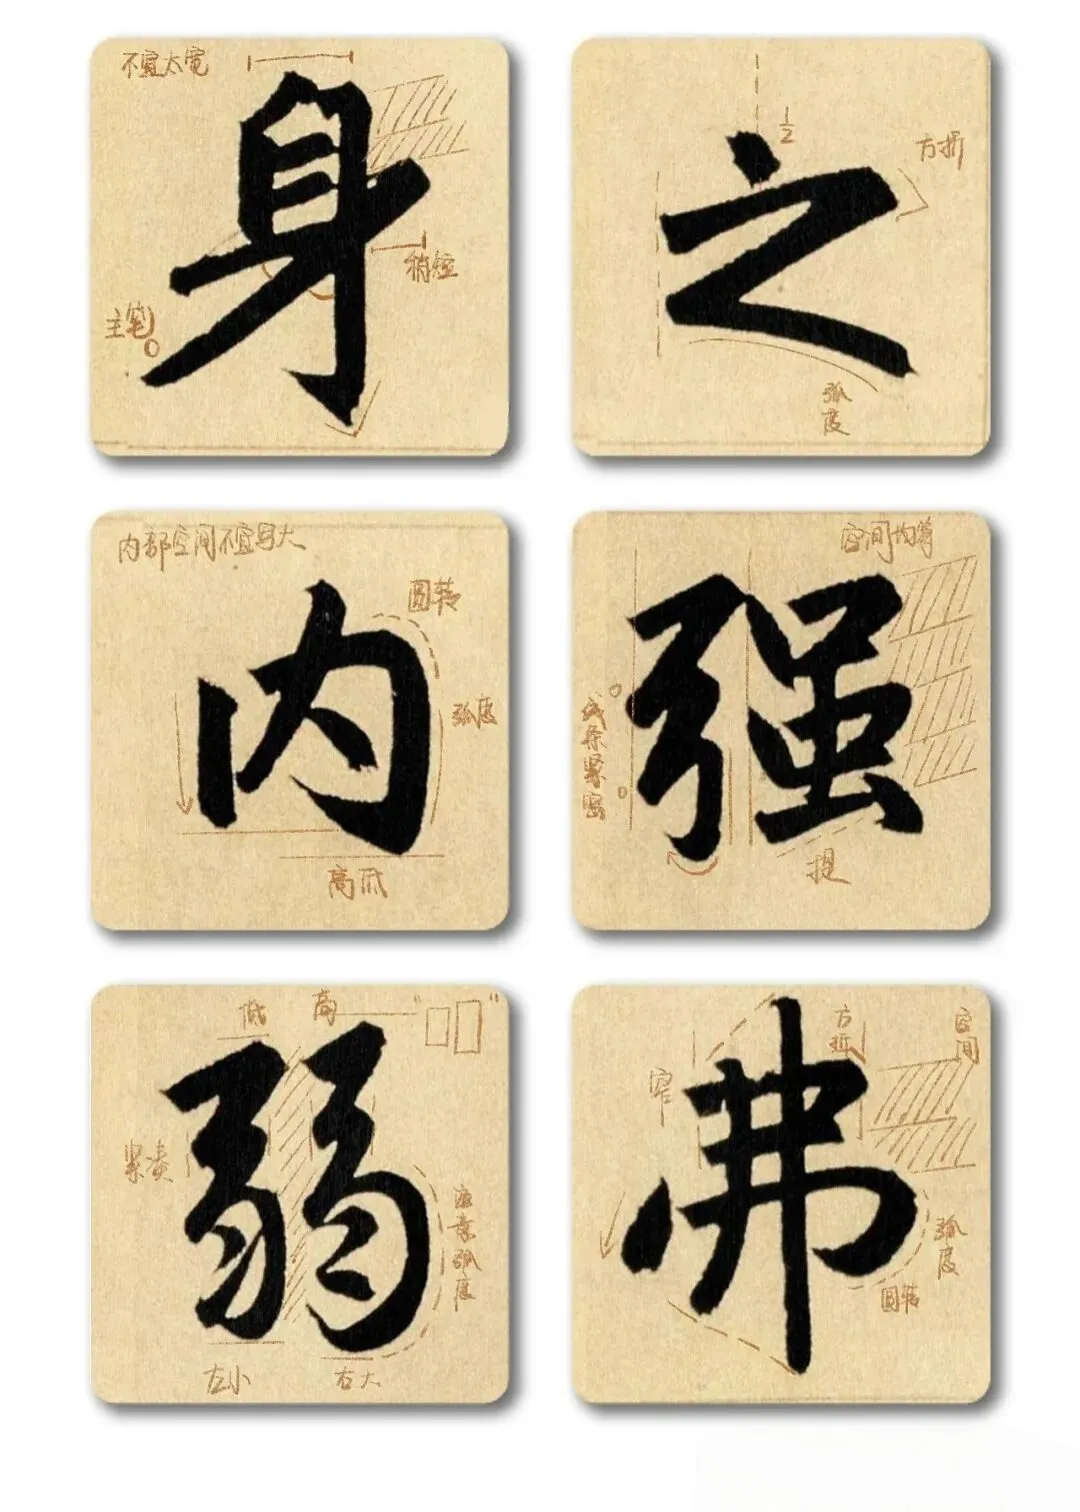 不宜太宽
身
稍短
主笔
1/2
之
方折
弧度
内部空间不宜过大
圆转
内
弧度
高低
空间均等
强
线条紧密
提
低 高
弱
紧凑
注意弧度
左小 右大
方折
空间
窄
弗
弧度
圆转